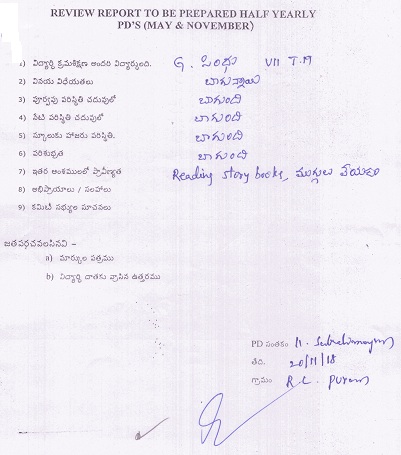 REVIEW REPORT TO BE PREPARED HALF YEARLY
PD'S (MAY & NOVEMBER)
1) విద్యార్థి క్రమశిక్షణ అందరి విద్యార్థులంది. G. సింధు VII T.M
2) వినయ విధేయతలు బాగున్నాయి
3) పూర్వపు పరిస్థితి చదువులో బాగుంది
4) నేటి పరిస్థితి చదువులో బాగుంది
5) స్కూలుకు హాజరు పరిస్థితి. బాగుంది
6) పరిశుభ్రత బాగుంది
7) ఇతర అంశములలో ప్రావీణ్యత Reading story books, ముగ్గులు వేయడం
8) అభిప్రాయాలు / సలహాలు
9) కమిటీ సభ్యుల సూచనలు
జతపరచవలసినవి -
a) మార్కుల పత్రము
b) విద్యార్థి దాతకు వ్రాసిన ఉత్తరము
PD సంతకం
తేది. 20/11/18
గ్రామం R.C. Puram